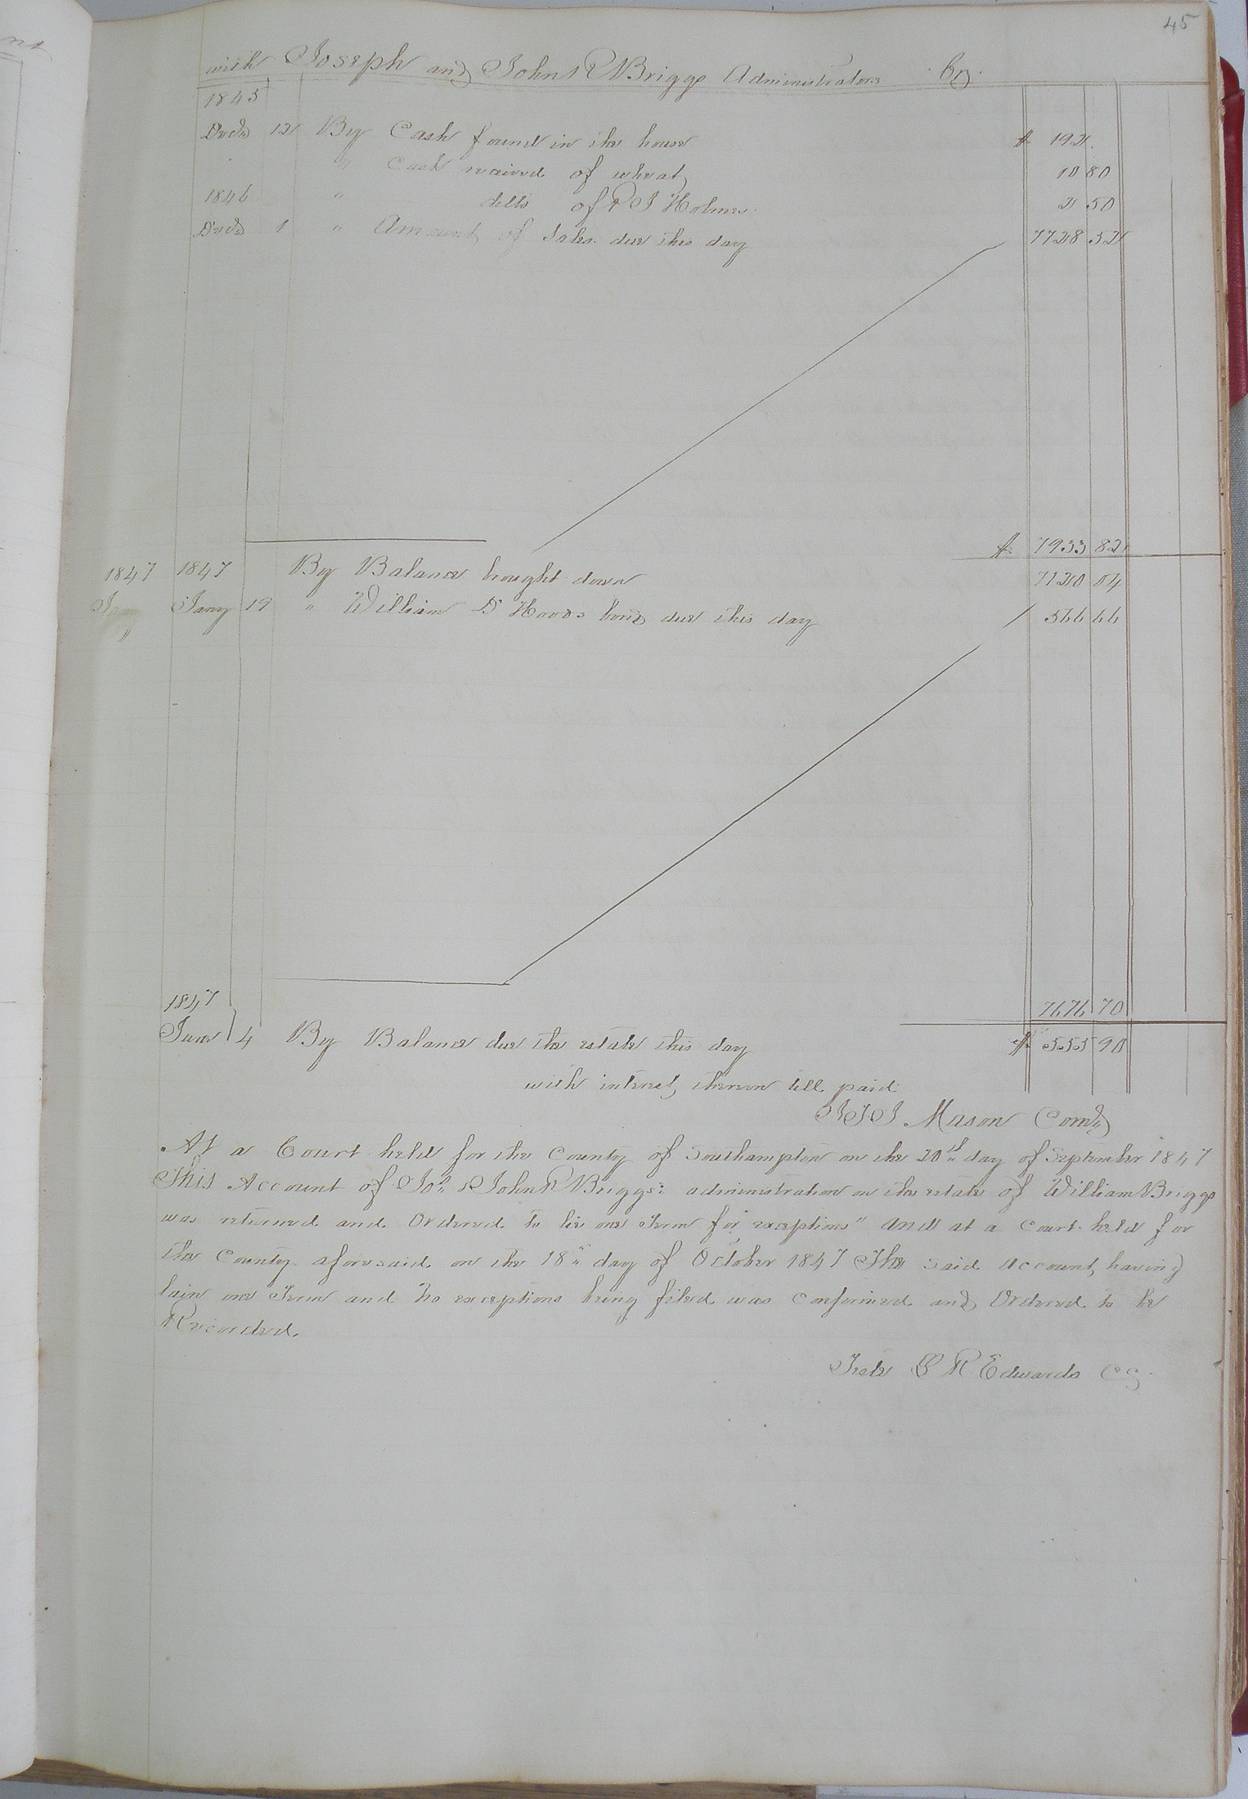 45
with Joseph and John R Briggs Administrators Cr.
1845
Decr 12 By Cash found in the house $ 192.
" Cash received of wheat 10 80
1846 " ditto of R J Holmes 2 50
Decr 1 " Amount of Sales due this day 7728 52
$ 7933 82
1847 1847 By Balance brought down 7120 04
Jany Jany 19 " William D Hoods bond due this day 566 66
"
7676 70
1847
June 4 By Balance due the estate this day $ 555 90
with interest thereon till paid
Mason Comr
At a Court held for the County of Southampton on the 20th day of September 1847
This Account of Jos. & John R Briggs: administration on the estate of William Briggs
was returned and Ordered to lie one Term for "exceptions" And at a Court held for
the County aforesaid on the 18th day of October 1847 The said Account, having
lain one Term and No exceptions being filed was Confirmed and Ordered to be
Recorded.
Teste L R Edwards CC